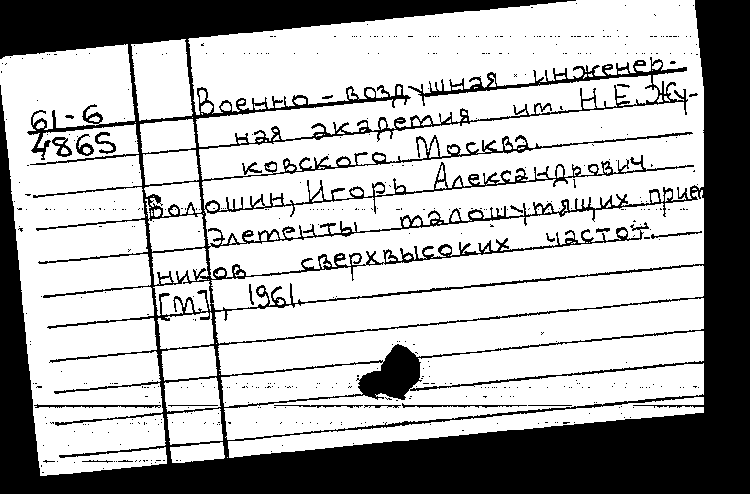 61-6
4865
Военно-воздушная инженер-
ная академия им. Н.Е.Жу-
ковского. Москва.
Волошин, Игорь Александрович.
Элементы малошумящих прием
ников сверхвысоких частот.
[М.], 1961.